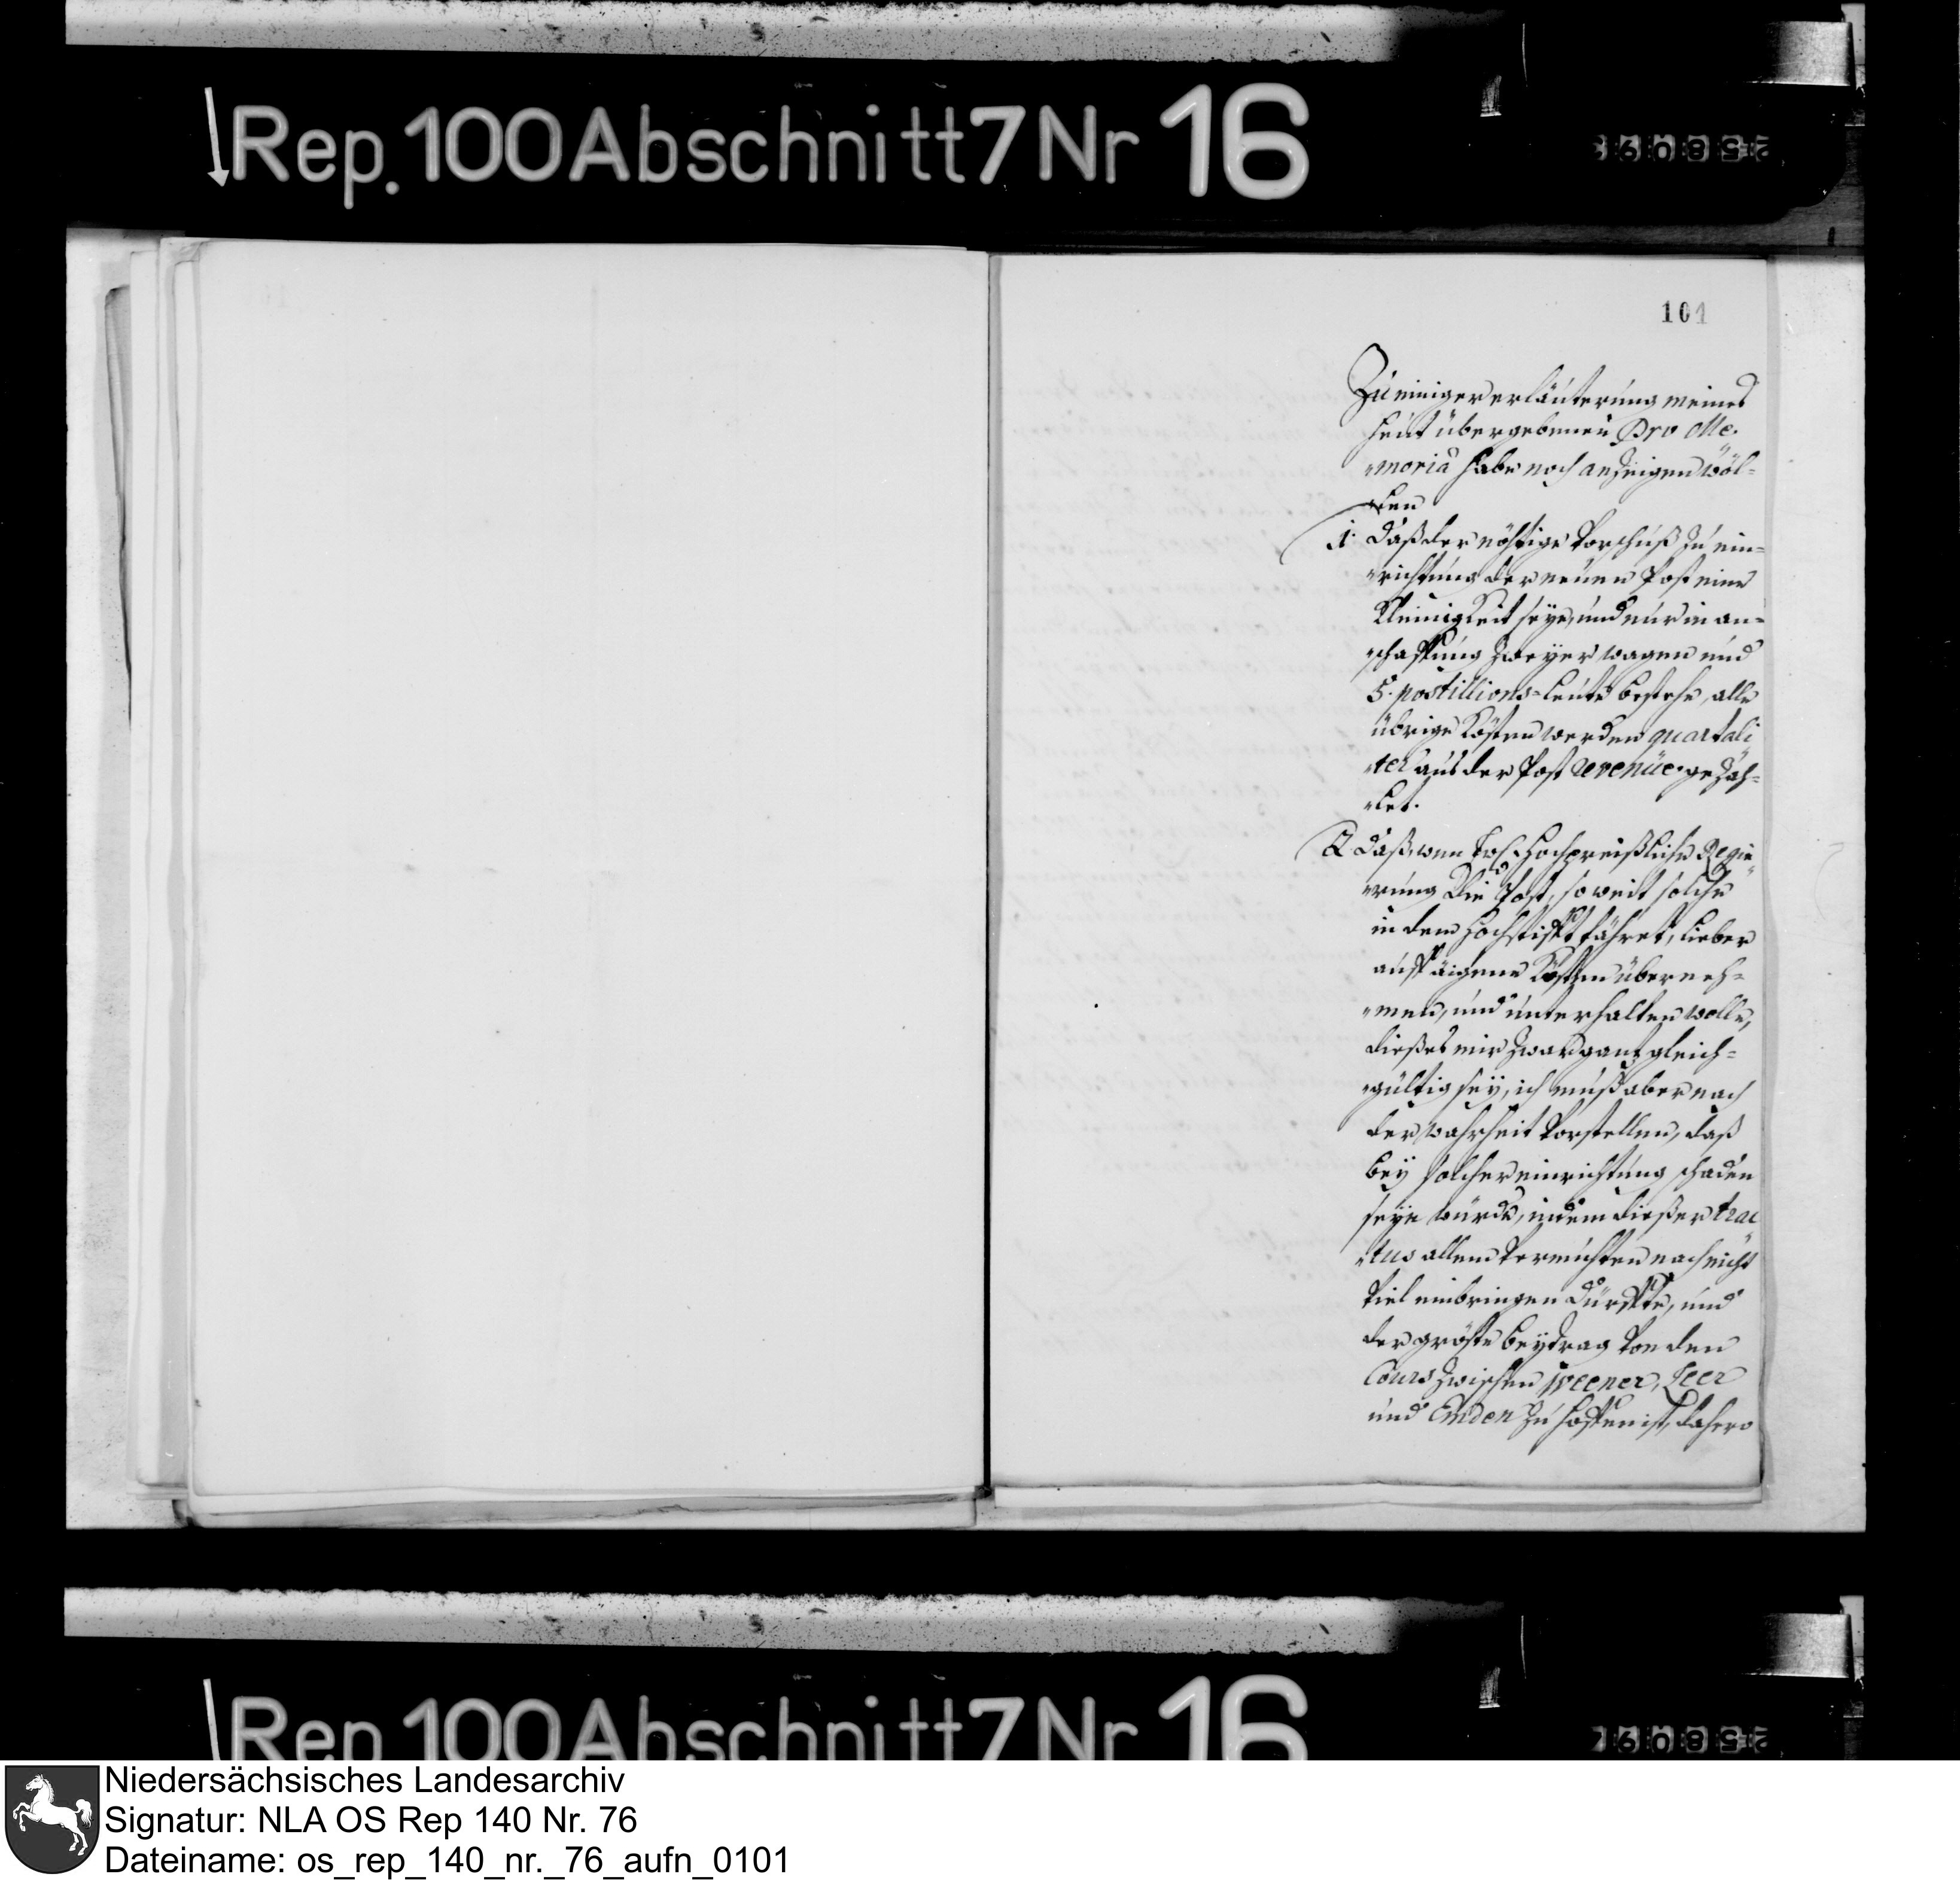 Rep. 100 Abschnitt 7 Nr 16
101
Zu einiger erläuterung meines
heut übergebenen Pro Me-
"moria habe noch anzeigen wöl-
"len
1. Daß der nöhtige Vorschuß zu ein-
"richtung der neuen Post eine
Kleinigkeit seye, und nur in an-
"schaffung zweyer wagen und
5. postillions-leute bestehe, alle
übrige Kösten werden quartali
"ter aus der Post revenüe gezah-
"let.
2. Daß, wen hochpreißliche Regie
"rung die Post, so weit solche
in dem Hochstifft fähret, lieber
auff äigene Kösten überneh-
"men, und unterhalten wolle,
dießes mir zwar gantz gleich-
"gültig sey, ich muß aber nach
der wahrheit vorstellen, daß
bey solcher einrichtung schaden
seyn würde, indem dießer trac
"tus allem vermuhten nach nicht
viel einbringen dürffte, und
der gröste beytrag von den
Cours zwischen Weener, Leer
und Emden zu hoffen ist, dahero
Rep. 100 Abschnitt 7 Nr 16
Niedersächsisches Landesarchiv
Signatur: NLA OS Rep 140 Nr. 76
Dateiname: os_rep_140_nr._76_aufn_0101